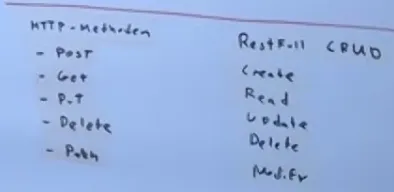 HTTP-Methoden
- Post
- Get
- PUT
- Delete
- Patch
RestFull CRUD
Create
Read
Update
Delete
Modify